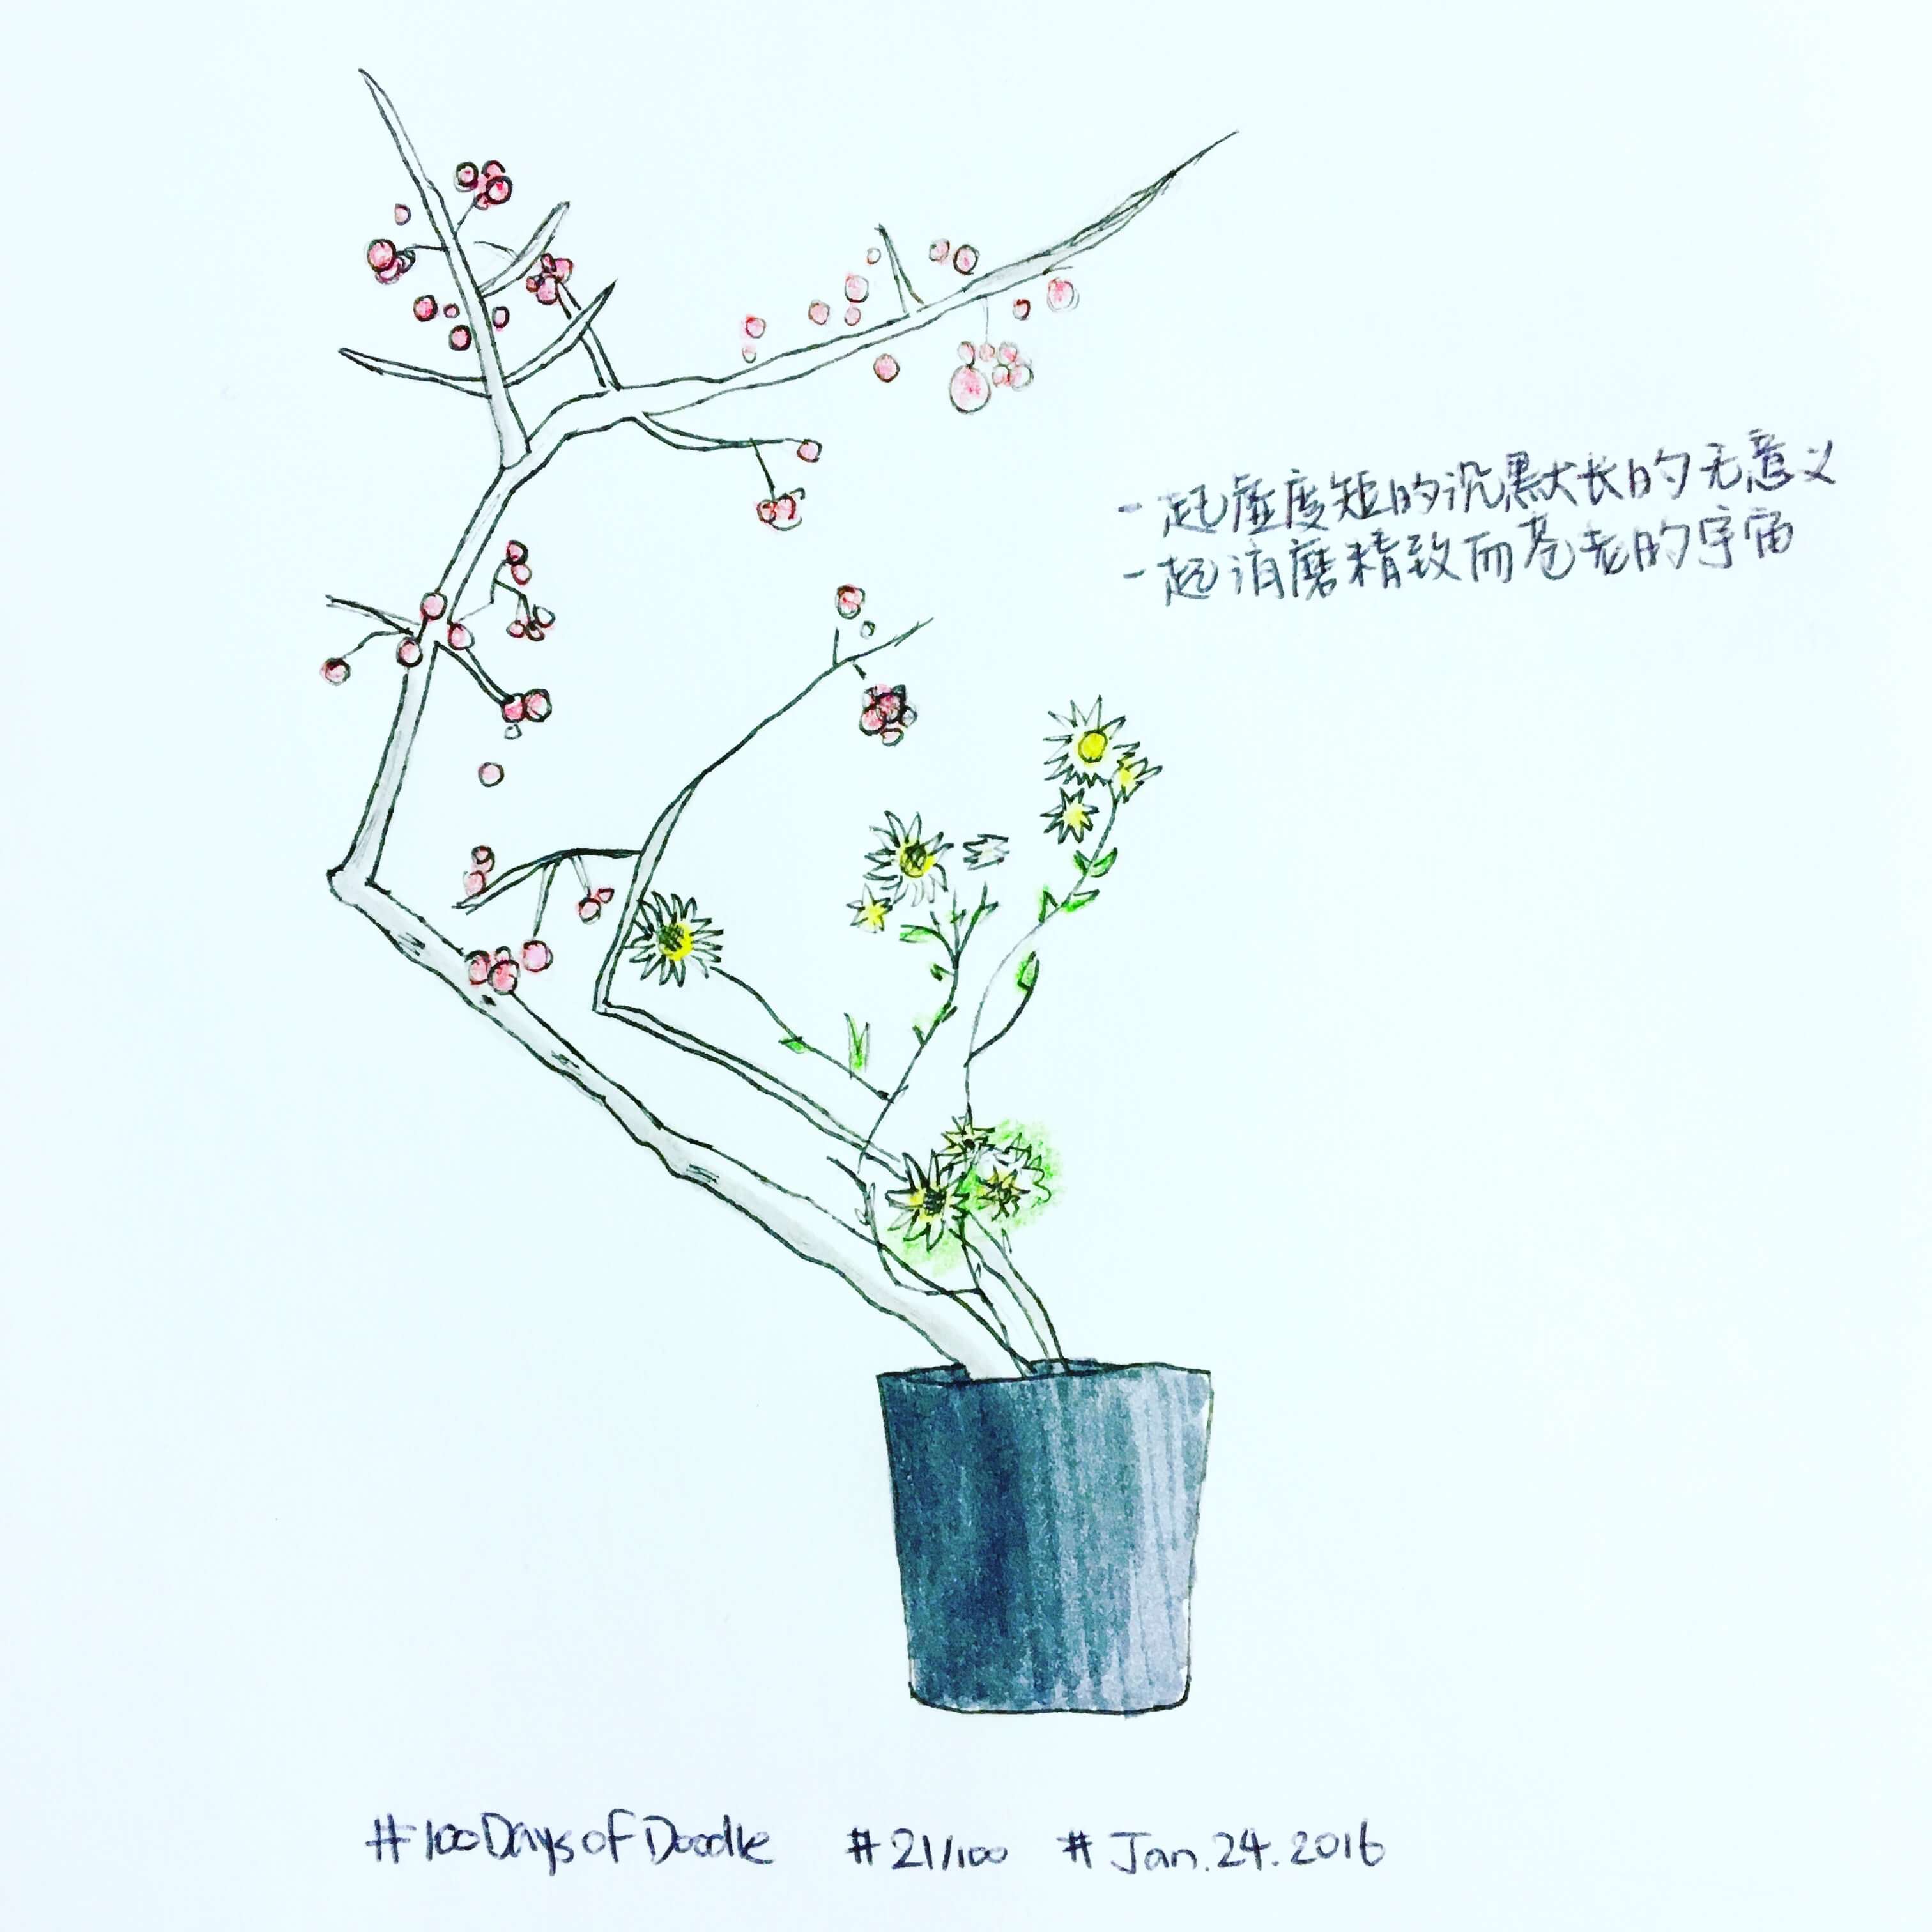 一起虚度短的沉默长的无意义
一起消磨精致而苍老的宇宙
#100DaysofDoodle #21/100 #Jan.24.2016